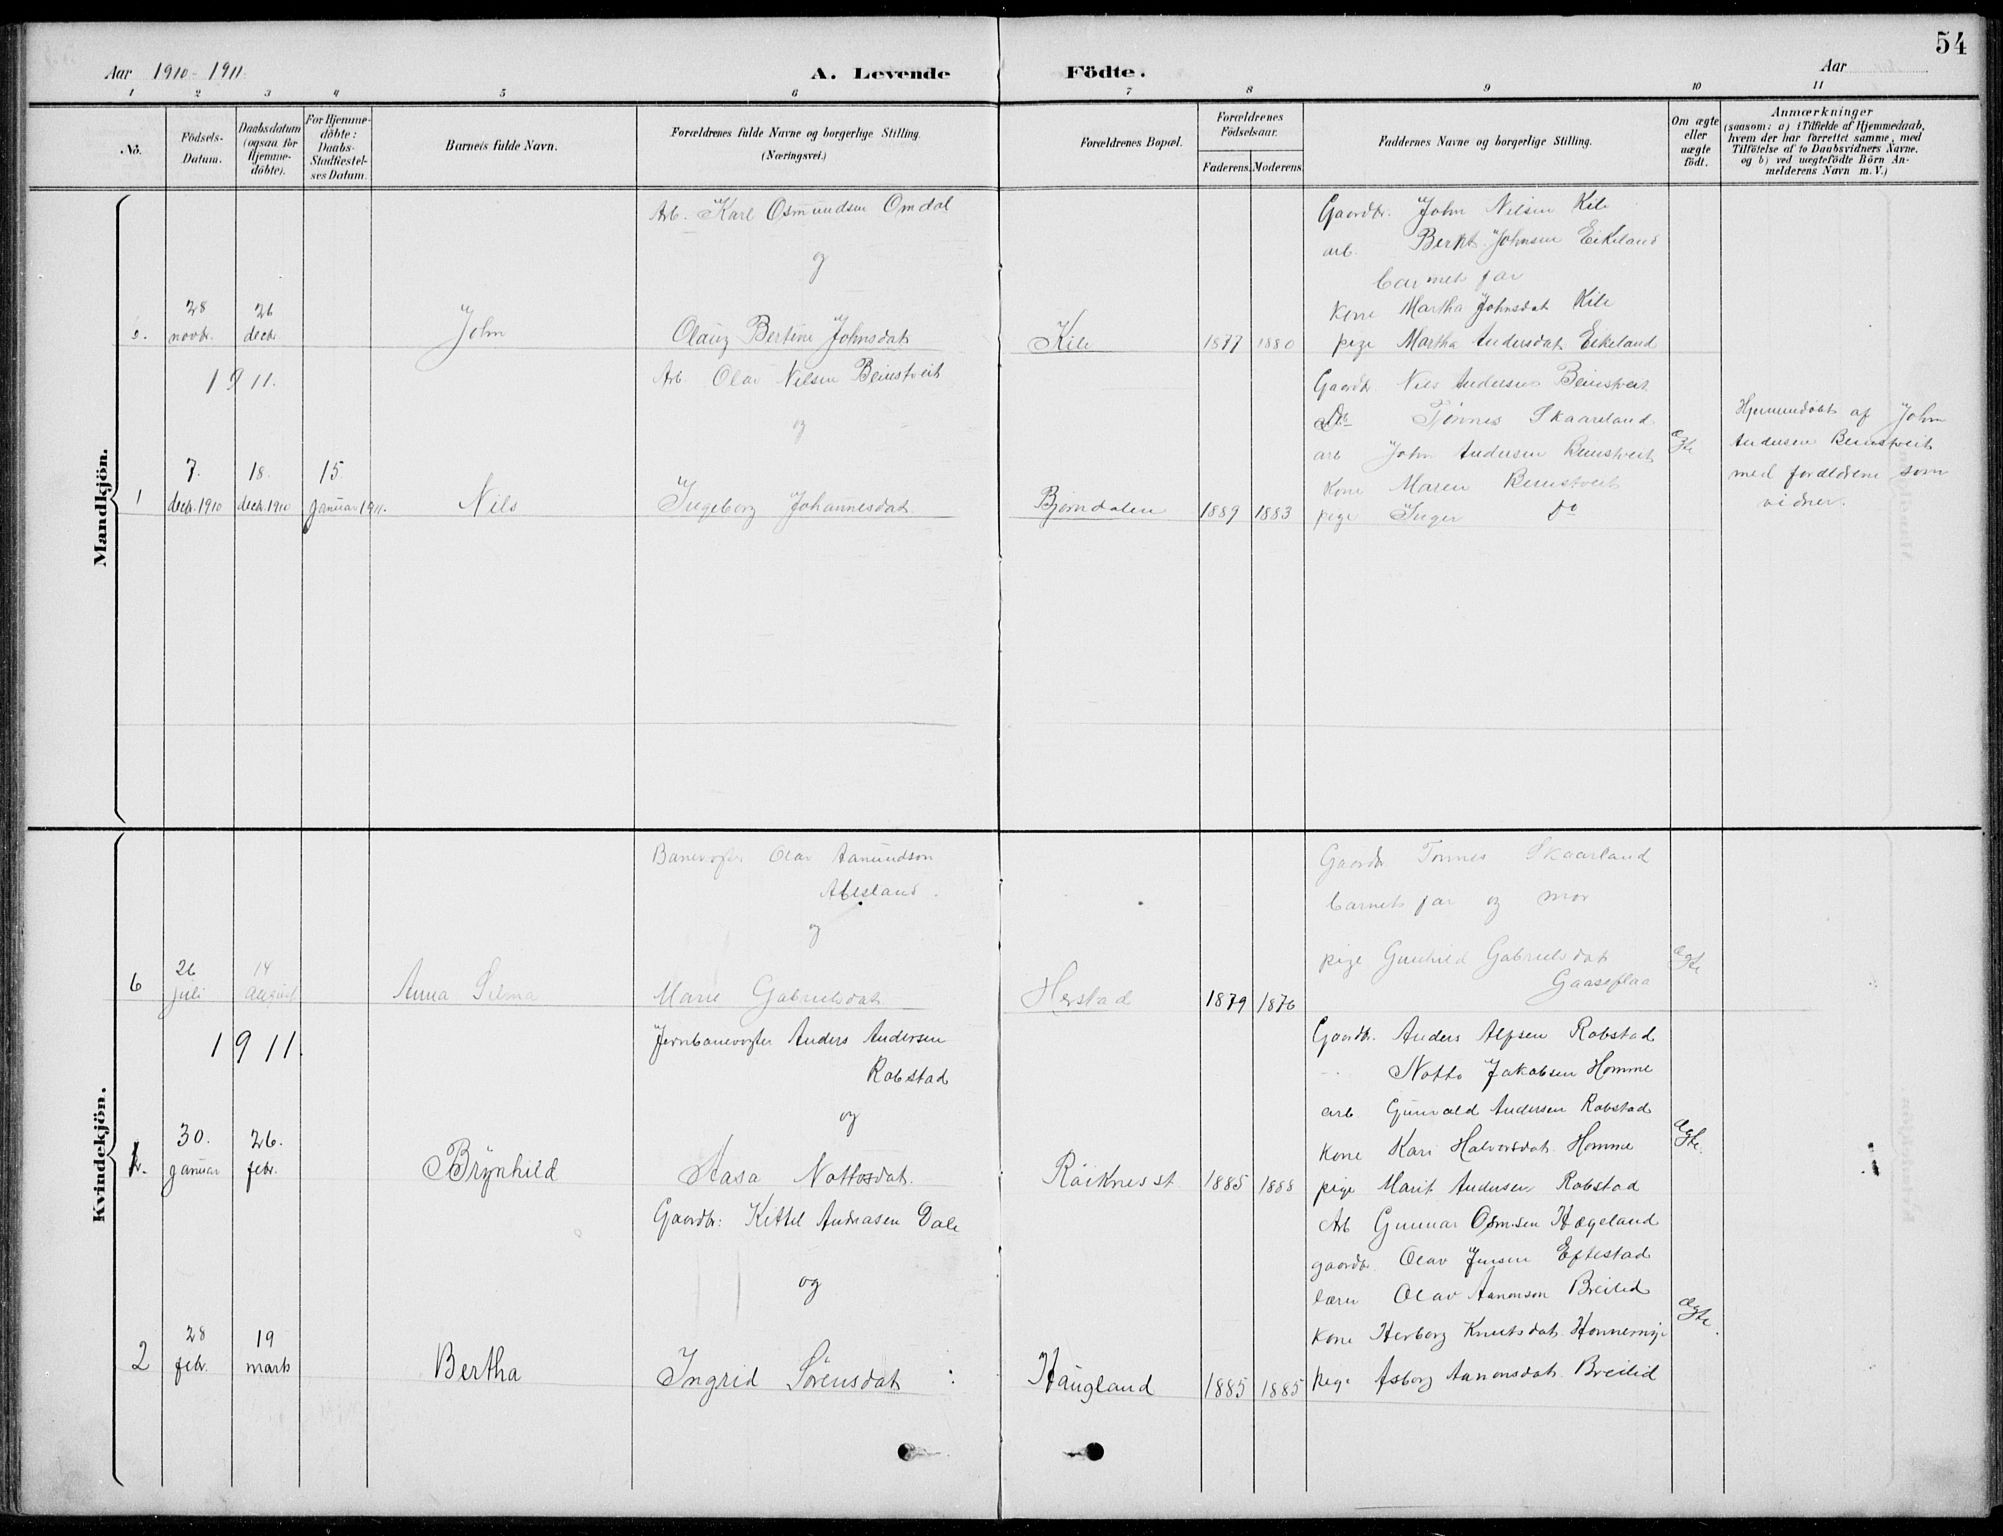 54
Aar 1910 - 1911. A. Levende Födte. Aar
1 2 3 4 5 6 7 8 9 10 11
No.
Födsels-
Datum.
Daabsdatum
(ogsaa for
Hjemme-
döbte).
For Hjemme-
döbte:
Daabs-
Stadfæstel-
ses Datum.
Barnets fulde Navn.
Forældrenes fulde Navne og borgerlige Stilling.
(Næringsvei.)
Forældrenes Bopæl.
Forældrenes
Födselsaar.
Faderens. Moderens.
Faddernes Navne og borgerlige Stilling.
Om ægte
eller
uægte
födt.
Anmærkninger
(saasom: a) i Tilfælde af Hjemmedaab,
hvem der har forrettet samme, med
Tilföielse af to Daabsvidners Navne,
og b) ved uægtefödte Börn An-
melderens Navn m. V.)
Mandkjön.
28
novbr.
26
decbr.
John
Arb. Karl Osmundsen Omdal
og
Olaug Bertine Johnsdat
Kile
1877 1880
Gaardbr. John Nilsen Kile
arb. Bernt Johnsen Eikeland
barnets far
kone Martha Johnsdat Kile
pige Martha Andersdat Eikeland
1911.
1
7.
decb. 1910
18.
decb. 1910
15
januar 1911.
Nils
Arb. Olav Nilsen Beinstveit
og
Ingeborg Johannesdat.
Bjørndalen
1889 1883
Gaardbr Nils Andersen Beinstveit
Do Tønnes Skaareland
arb John Andersen Beinstveit
kone Maren Beinstveit
pige Inger do
ægte
Hjemmedøbt af John
Andersen Beinstveit
med forældrene som
vidner.
Kvindekjön.
6
26
juli
14
august
Anna Selma
Banevogter Olav Aanundson
Abesland.
og
Marie Gabrielsdat
Herstad
1879 1876
Gaardbr Tønnes Skaarland
barnets far og mor
pige Gunhild Gabrielsdat
Gaaseflaa
ægte
1911.
1.
30.
januar
26.
febr.
Brynhild
Jernbanevogter Anders Andersen
Robstad
og
Aasa Nottosdat.
Röiknes st
1885 1888
Gaardbr. Anders Alfsen Robstad
Notto Jakobsen Homme
arb Gunvald Andersen Robstad
kone Kari Halvorsdat. Homme
pige Marit Andersen Robstad
ægte.
2
28
febr.
19
marts
Bertha
Gaardbr: Kittel Andreasen Dale
og
Ingrid Sørensdat
Haugland
1885 1885
Arb Gunnar Osmsen Hægeland
gaardbr. Olav Jensen Eftestad
lærer Olav Aanonson Breilid
kone Herborg Knutsdat. Honnemyr
pige Asborg Aanonsdat. Breilid
ægte.